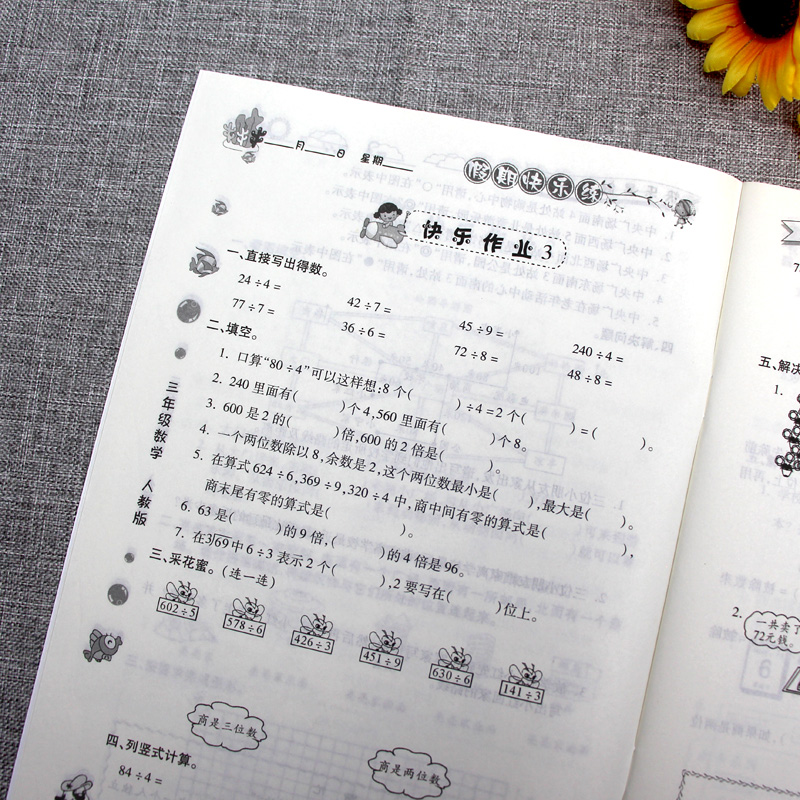 ____月____日 星期____
假期快乐练
快乐作业3
一、直接写出得数。
24÷4= 42÷7= 45÷9= 240÷4=
77÷7= 36÷6= 72÷8= 48÷8=
二、填空。
1. 口算“80÷4”可以这样想:8个( )÷4=2个( )=( )。
2. 240里面有( )个4,560里面有( )个8。
3. 600是2的( )倍,600的2倍是( )。
4. 一个两位数除以8,余数是2,这个两位数最小是( ),最大是( )。
5. 在算式624÷6,369÷9,320÷4中,商中间有零的算式是( ),
商末尾有零的算式是( )。
6. 63是( )的9倍,( )的4倍是96。
7. 在3)69中6÷3表示2个( ),2要写在( )位上。
三、采花蜜。(连一连)
602÷5 578÷6 426÷3 451÷9 630÷6 141÷3
商是三位数
商是两位数
四、列竖式计算。
84÷4=
三年级数学 人教版
五、解决
1.
2.
一共卖了
72元钱。